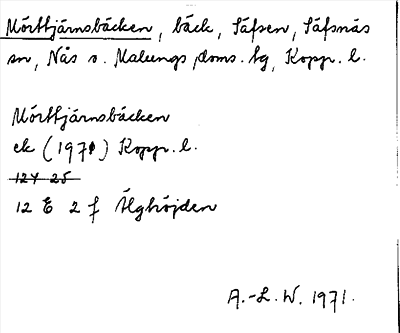 Mörttjärnsbäcken, bäck, Säfsen, Säfsnäs
sn, Nås o. Malungs doms. tg, Kopp. l.
Mörttjärnsbäcken
ek (1971) Kopp. l.
12Y 25
12 E 2 f Älghöjden
A.-L. W. 1971.